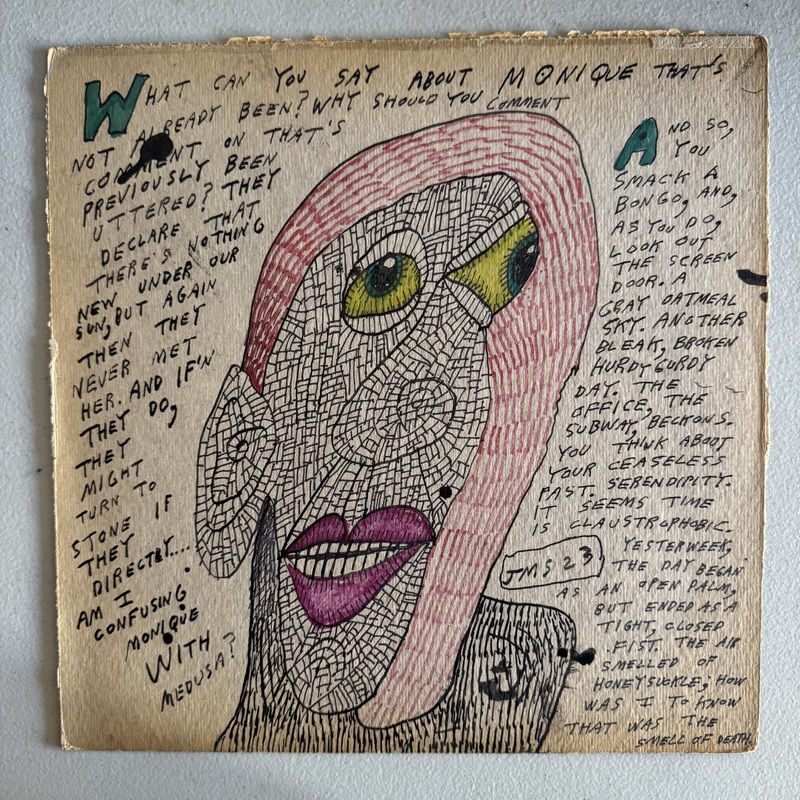 WHAT CAN YOU SAY ABOUT MONIQUE THAT'S
NOT ALREADY BEEN? WHY SHOULD YOU COMMENT
COMMENT ON THAT'S
PREVIOUSLY BEEN
UTTERED? THEY
DECLARE THAT
THERE'S NOTHING
NEW UNDER OUR
SUN, BUT AGAIN
THEN THEY
NEVER MET
HER. AND IF'N
THEY DO,
THEY
MIGHT
TURN TO
STONE IF
THEY
DIRECTLY....
AM I
CONFUSING
MONIQUE
WITH
MEDUSA?
AND SO,
YOU
SMACK A
BONGO, AND,
AS YOU DO,
LOOK OUT
THE SCREEN
DOOR. A
GRAY OATMEAL
SKY. ANOTHER
BLEAK, BROKEN
HURDYGURDY
DAY. THE
OFFICE, THE
SUBWAY, BECKONS.
YOU THINK ABOUT
YOUR CEASELESS
PAST. SERENDIPITY.
IT SEEMS TIME
IS CLAUSTROPHOBIC.
YESTERWEEK,
THE DAY BEGAN
AS AN OPEN PALM,
BUT ENDED AS A
TIGHT, CLOSED
FIST. THE AIR
SMELLED OF
HONEYSUCKLE; HOW
WAS I TO KNOW
THAT WAS THE
SMELL OF DEATH.
JMS 23